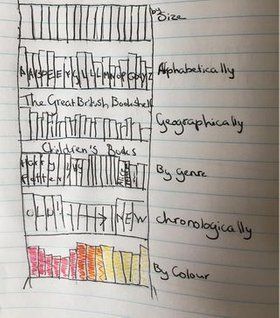 by
Size
Alphabetically
The Great British Bookshelf
Geographically
Children's Books
Harry
Potter
By genre
OLD NEW
chronologically
By Colour